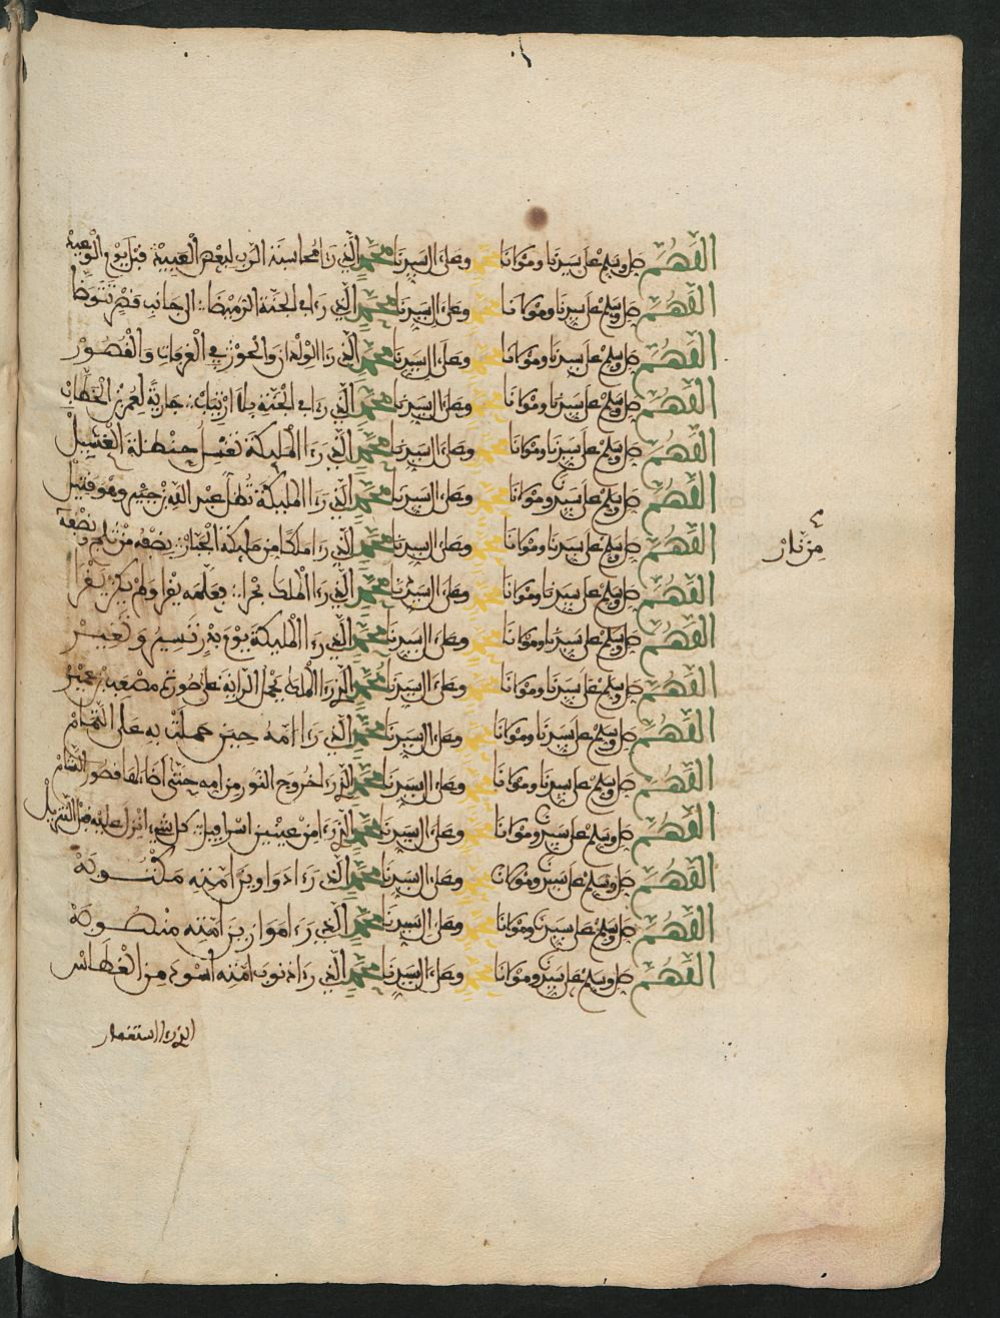 اللهم صل وسلم على سيدنا ومولانا محمد وعلى ءال سيدنا محمد الذي رءا محاسبة الرب لبعض العبيد قبل يوم الوعيد
اللهم صل وسلم على سيدنا ومولانا محمد وعلى ءال سيدنا محمد الذي رءا في الجنة الرميصا الى جانب قصر تتوضا
اللهم صل وسلم على سيدنا ومولانا محمد وعلى ءال سيدنا محمد الذي رءا الولدان والحور في الغرفات والقصور
اللهم صل وسلم على سيدنا ومولانا محمد وعلى ءال سيدنا محمد الذي رءا في الجنة بلا ارتياب جارية لعمر بن الخطاب
اللهم صل وسلم على سيدنا ومولانا محمد وعلى ءال سيدنا محمد الذي رءا المليكة تغسل حنظلة الغسيل
اللهم صل وسلم على سيدنا ومولانا محمد وعلى ءال سيدنا محمد الذي رءا المليكة تظل عبد الله بن جحش وهو قتيل
اللهم صل وسلم على سيدنا ومولانا محمد وعلى ءال سيدنا محمد الذي رءا ملكا من مليكة الجبار نصفه من ثلج ونصفه
من نار
اللهم صل وسلم على سيدنا ومولانا محمد وعلى ءال سيدنا محمد الذي رءا الملك بحرا فعلمه يقرا ولم يكن يقرا
اللهم صل وسلم على سيدنا ومولانا محمد وعلى ءال سيدنا محمد الذي رءا المليكة يوم بدر تسير وتغير
اللهم صل وسلم على سيدنا ومولانا محمد وعلى ءال سيدنا محمد الذي رءا الملك يحمل الراية على صورة مصعب بن عمير
اللهم صل وسلم على سيدنا ومولانا محمد وعلى ءال سيدنا محمد الذي رءا امه حين حملت به على التمام
اللهم صل وسلم على سيدنا ومولانا محمد وعلى ءال سيدنا محمد الذي رءا خروج النور من امه حتى اضا لها قصور الشام
اللهم صل وسلم على سيدنا ومولانا محمد وعلى ءال سيدنا محمد الذي رءا من عينين اسرافيل كل شيء انزل عليه قبل التنزيل
اللهم صل وسلم على سيدنا ومولانا محمد وعلى ءال سيدنا محمد الذي رءا دواوين امته مكتوبة
اللهم صل وسلم على سيدنا ومولانا محمد وعلى ءال سيدنا محمد الذي رءا موازين امته منصوبة
اللهم صل وسلم على سيدنا ومولانا محمد وعلى ءال سيدنا محمد الذي رءا ذنوب امته اسود من الغطاس
الذي رءا استغفار